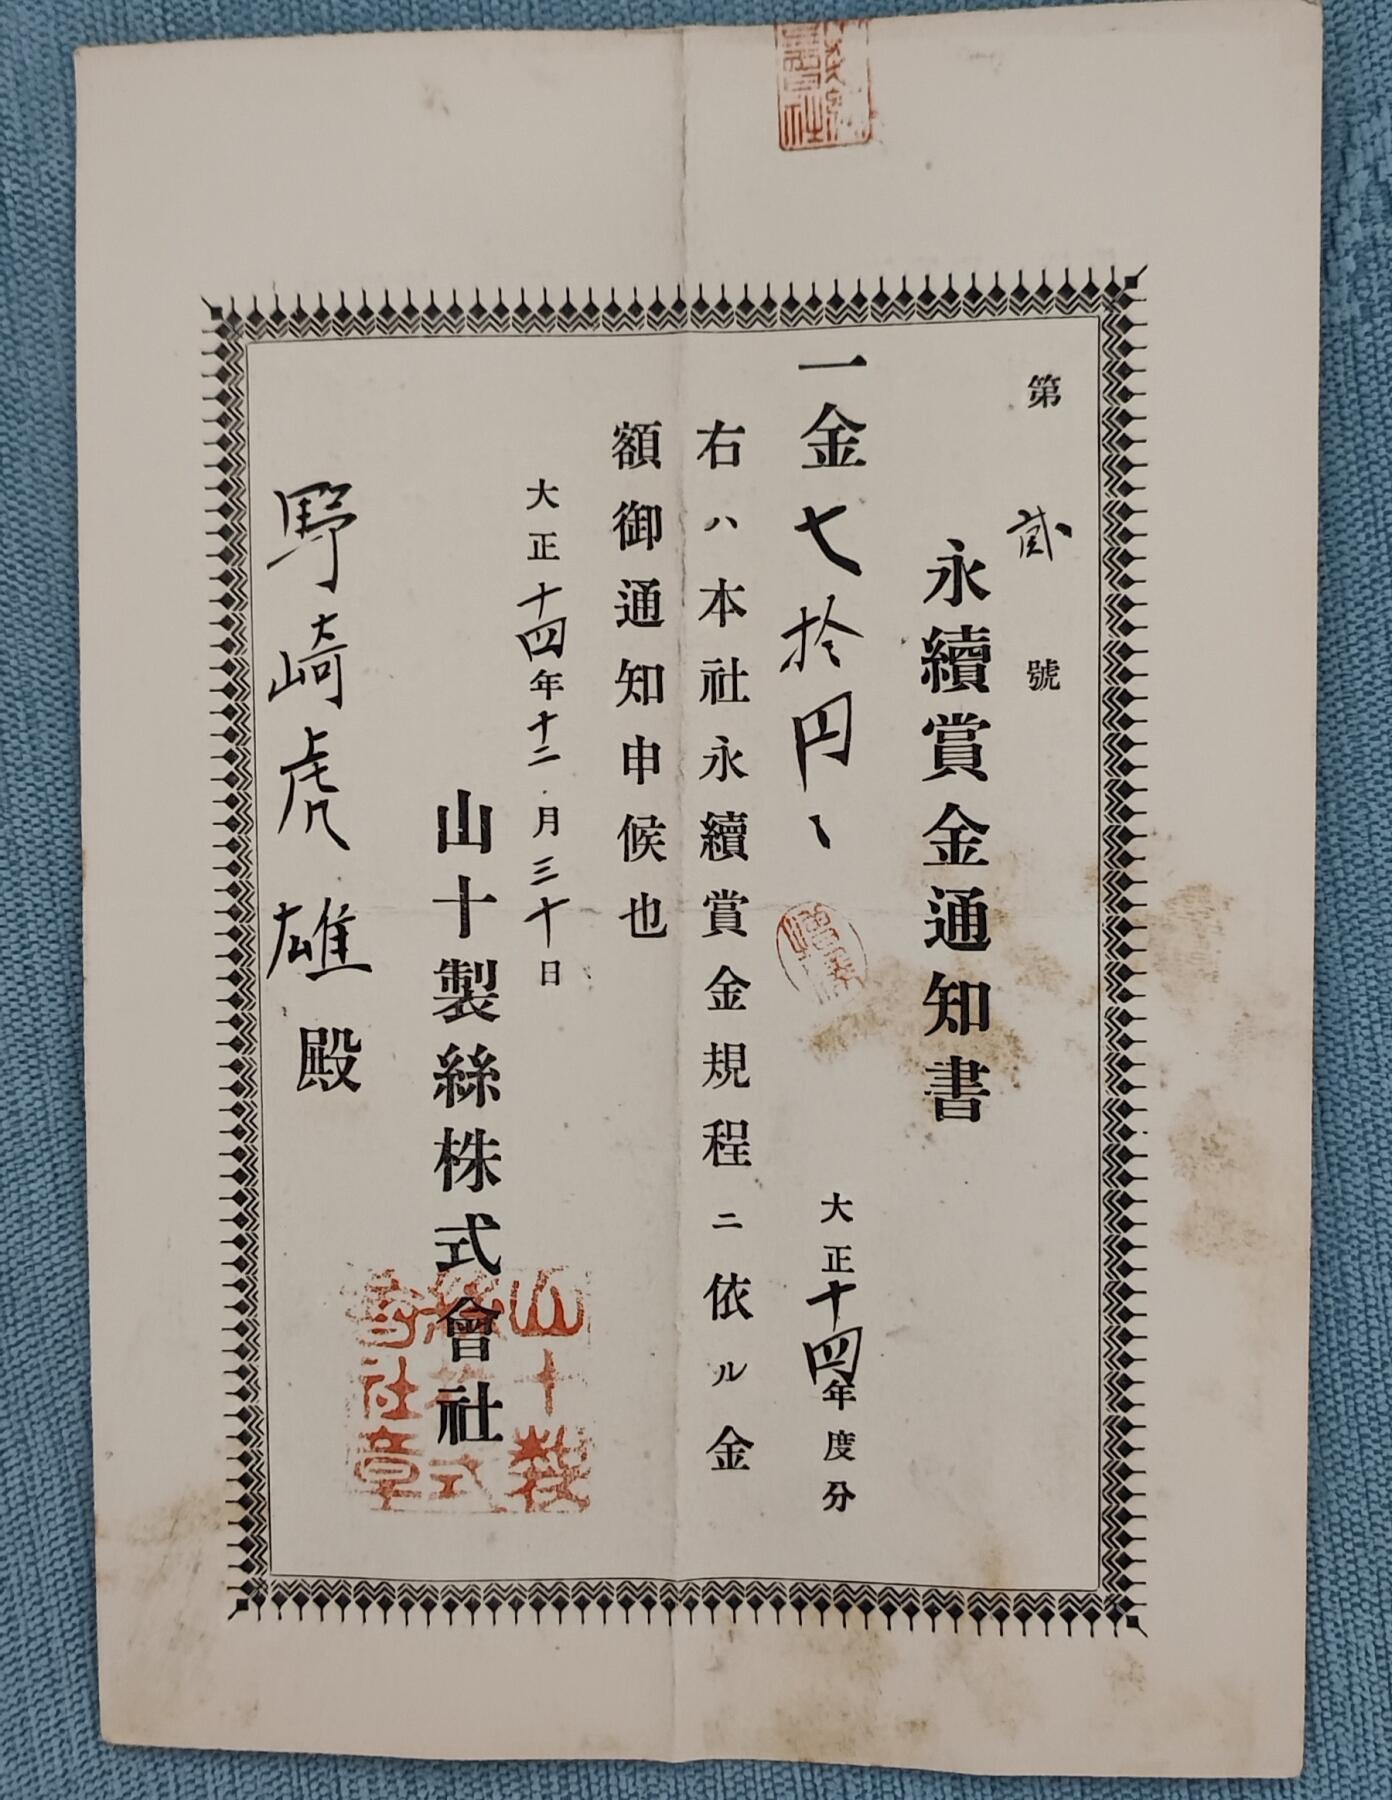 第貳號
永續賞金通知書
一金七拾円、
大正十四年度分
右ハ本社永續賞金規程ニ依ル金
額御通知申候也
大正十四年十二月三十日
山十製絲株式會社
野崎虎雄殿
山十製
絲株式
會社章